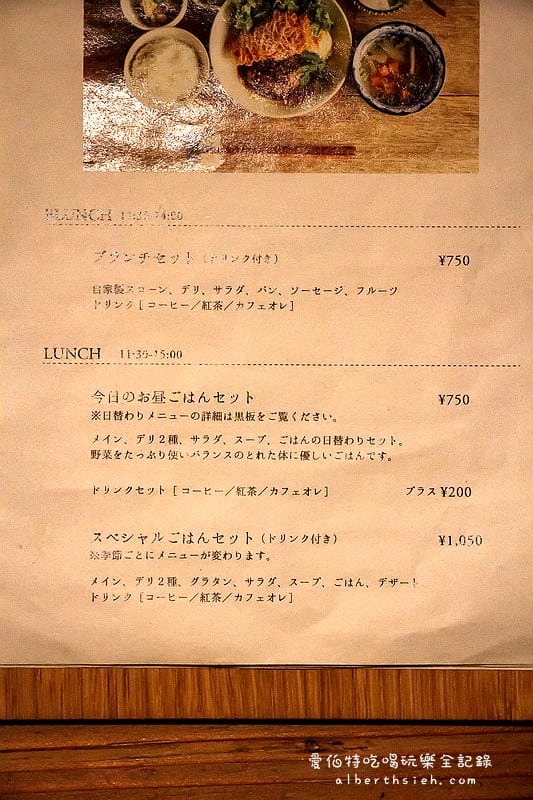 BRUNCH
ブランチセット（ドリンク付き） ¥750
自家製スコーン、デリ、サラダ、パン、ソーセージ、フルーツ
ドリンク［コーヒー／紅茶／カフェオレ］
LUNCH 11:30-15:00
今日のお昼ごはんセット ¥750
※日替わりメニューの詳細は黒板をご覧ください。
メイン、デリ２種、サラダ、スープ、ごはんの日替わりセット。
野菜をたっぷり使いバランスのとれた体に優しいごはんです。
ドリンクセット［コーヒー／紅茶／カフェオレ］ プラス ¥200
スペシャルごはんセット（ドリンク付き） ¥1,050
※季節ごとにメニューが変わります。
メイン、デリ２種、グラタン、サラダ、スープ、ごはん、デザート
ドリンク［コーヒー／紅茶／カフェオレ］
愛伯特吃喝玩樂全記錄
alberthsieh.com